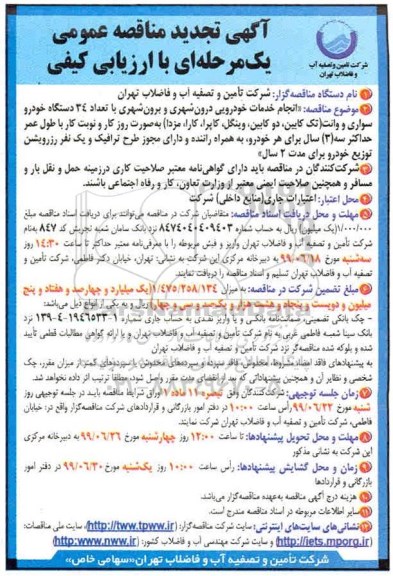 آگهی تجدید مناقصه عمومی
یک‌مرحله‌ای با ارزیابی کیفی
شرکت تامین و تصفیه آب
و فاضلاب تهران
نام دستگاه مناقصه‌گزار: شرکت تأمین و تصفیه آب و فاضلاب تهران
موضوع مناقصه: «انجام خدمات خودرویی درون‌شهری و برون‌شهری با تعداد ۳٤ دستگاه خودرو
سواری و وانت(تک کابین، دو کابین، وینگل، کاپرا، کارا، مزدا) به‌صورت روز کار و نوبت کار با طول عمر
حداکثر سه(۳) سال برای هر خودرو، به همراه راننده و دارای مجوز طرح ترافیک و یک نفر رزرویشن
توزیع خودرو برای مدت ۲ سال»
شرکت‌کنندگان در مناقصه باید دارای گواهی‌نامه معتبر صلاحیت کاری درزمینه حمل و نقل بار و
مسافر و همچنین صلاحیت ایمنی معتبر از وزارت تعاون، کار و رفاه اجتماعی باشند.
محل اعتبار: اعتبارات جاری(منابع داخلی) شرکت
مهلت و محل دریافت اسناد مناقصه: متقاضیان شرکت در مناقصه می‌توانند برای دریافت اسناد مناقصه مبلغ
۱/۰۰۰/۰۰۰(یک میلیون) ریال به حساب شماره ۸٤۷٤۰٤۰٤۰۹۰۴۳ نزد بانک سامان شعبه تجریش کد ۸٤۷ به‌نام
شرکت تأمین و تصفیه آب و فاضلاب تهران واریز و فیش مربوطه را با معرفی‌نامه معتبر حداکثر تا ساعت ۱٤:۳۰ روز
سه‌شنبه مورخ ۹۹/۰٦/۱۸ به دبیرخانه مرکزی این شرکت به نشانی: تهران، خیابان دکتر فاطمی، شرکت تأمین و
تصفیه آب و فاضلاب تهران تسلیم و اسناد مناقصه را دریافت نمایند.
مبلغ تضمین شرکت در مناقصه: به میزان ۱/٤۷۵/۲۵۸/۱۳٤(یک میلیارد و چهارصد و هفتاد و پنج
میلیون و دویست و پنجاه و هشت هزار و یک‌صد و سی و چهار) ریال و به یکی از انواع ذیل می‌باشد:
- چک بانکی تضمینی، ضمانت‌نامه بانکی و یا واریز نقدی به حساب جاری شماره ۱-۱۹٤٦۵۳۳-٤-۱۳۹ نزد
بانک سینا شعبه فاطمی غربی به نام شرکت تأمین و تصفیه آب و فاضلاب تهران و یا ارائه گواهی مطالبات قطعی تأیید
شده و بلوکه شده مناقصه‌گر نزد شرکت تأمین و تصفیه آب و فاضلاب تهران
به پیشنهادهای فاقد امضاء، مشروط، مخدوش، فاقد سپرده و سپرده‌های مخدوش یا سپرده‌های کمتر از میزان مقرر، چک
شخصی و نظایر آن و همچنین پیشنهاداتی که بعد از انقضای مدت مقرر واصل شود، مطلقا ترتیب اثر داده نخواهد شد.
زمان جلسه توجیهی: شرکت‌کنندگان وفق تبصره ۱۲ ماده ۷ اوراق شرایط مناقصه باید در جلسه توجیهی روز
شنبه مورخ ۹۹/۰٦/۲۲ رأس ساعت ۱۰:۰۰ در دفتر امور بازرگانی و قراردادهای شرکت مناقصه‌گزار واقع در: خیابان
فاطمی، شرکت تأمین و تصفیه آب و فاضلاب تهران شرکت نمایند.
مهلت و محل تحویل پیشنهادها: تا ساعت ۱۲:۰۰ روز چهارشنبه مورخ ۹۹/۰٦/۲٦ به دبیرخانه مرکزی
این شرکت به نشانی مذکور
زمان و محل گشایش پیشنهادها: رأس ساعت ۱۰:۰۰ روز یک‌شنبه مورخ ۹۹/۰٦/۳۰ در دفتر امور
بازرگانی و قراردادها
هزینه درج آگهی مناقصه به‌عهده مناقصه‌گزار می‌باشد.
سایر اطلاعات مربوطه در اسناد مناقصه مندرج است.
نشانی‌های سایت‌های اینترنتی: سایت شرکت مناقصه‌گزار: (http://tww.tpww.ir)، سایت ملی مناقصات:
(http://iets.mporg.ir) و سایت شرکت مهندسی آب و فاضلاب کشور: (http:www.nww.ir)
شرکت تأمین و تصفیه آب و فاضلاب تهران«سهامی خاص»